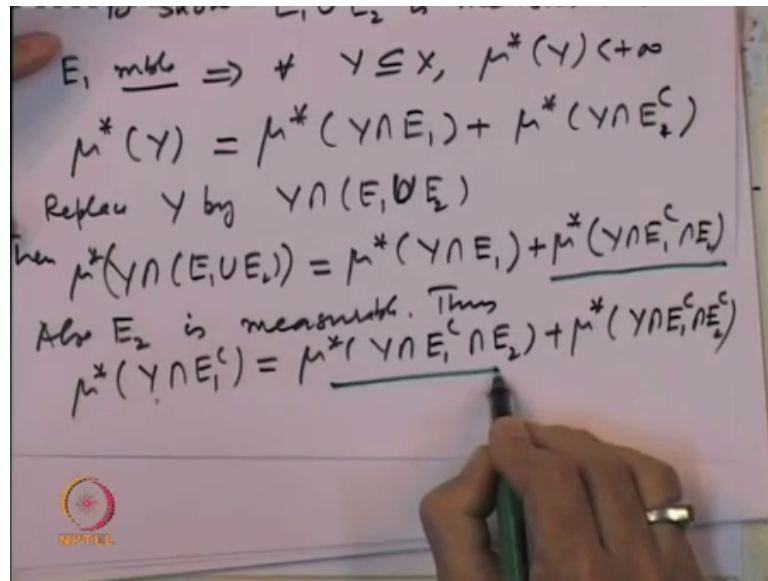 To show E₁∪E₂ is
E₁ mble ⇒ ∀ Y ⊆ X, μ*(Y) < +∞
μ*(Y) = μ*(Y∩E₁) + μ*(Y∩E₂ᶜ)
Replace Y by Y∩(E₁∪E₂)
Then μ*(Y∩(E₁∪E₂)) = μ*(Y∩E₁) + μ*(Y∩E₁ᶜ∩E₂)
Also E₂ is measurable. Thus
μ*(Y∩E₁ᶜ) = μ*(Y∩E₁ᶜ∩E₂) + μ*(Y∩E₁ᶜ∩E₂ᶜ)
NPTEL